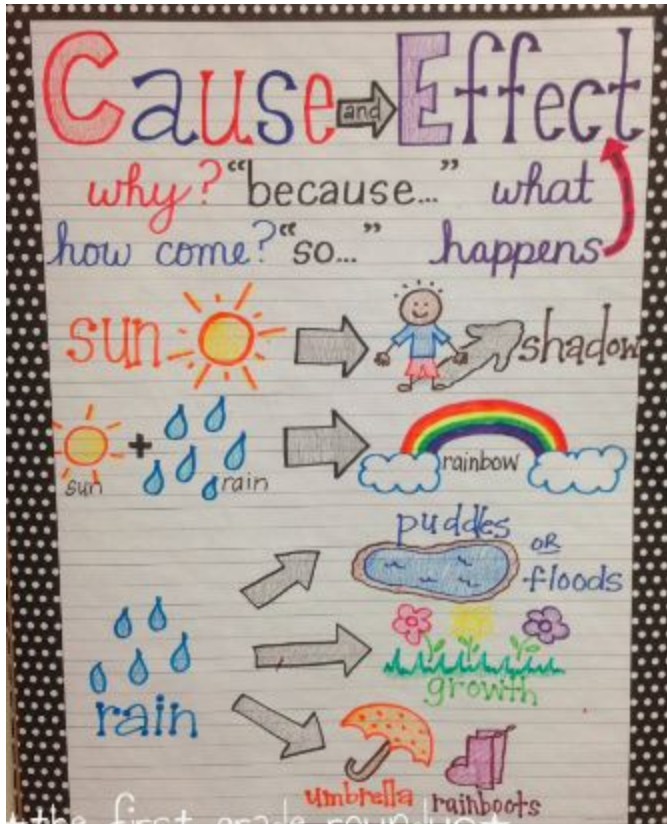 Cause and Effect
why? "because..." what
how come? "so..." happens
sun shadow
sun + rain rainbow
puddles
OR
floods
growth
rain
umbrella rainboots
★the first grade roundup★